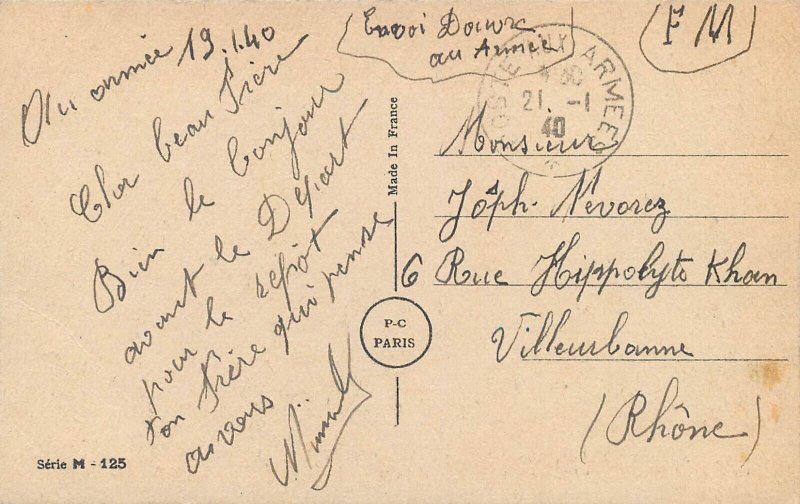 Au armée 19.1.40
Cher beau Frère
Bien le bonjour
avant le Départ
pour le repôt
ton Frère qui pense
a vous
Série M - 125
Made In France
P-C
PARIS
Envoi
au Armée
FM
POSTE AUX ARMEES
21 -1
40
Monsieur
Jôph. Nevorez
6 Rue Hippolyte Khan
Villeurbanne
(Rhône)